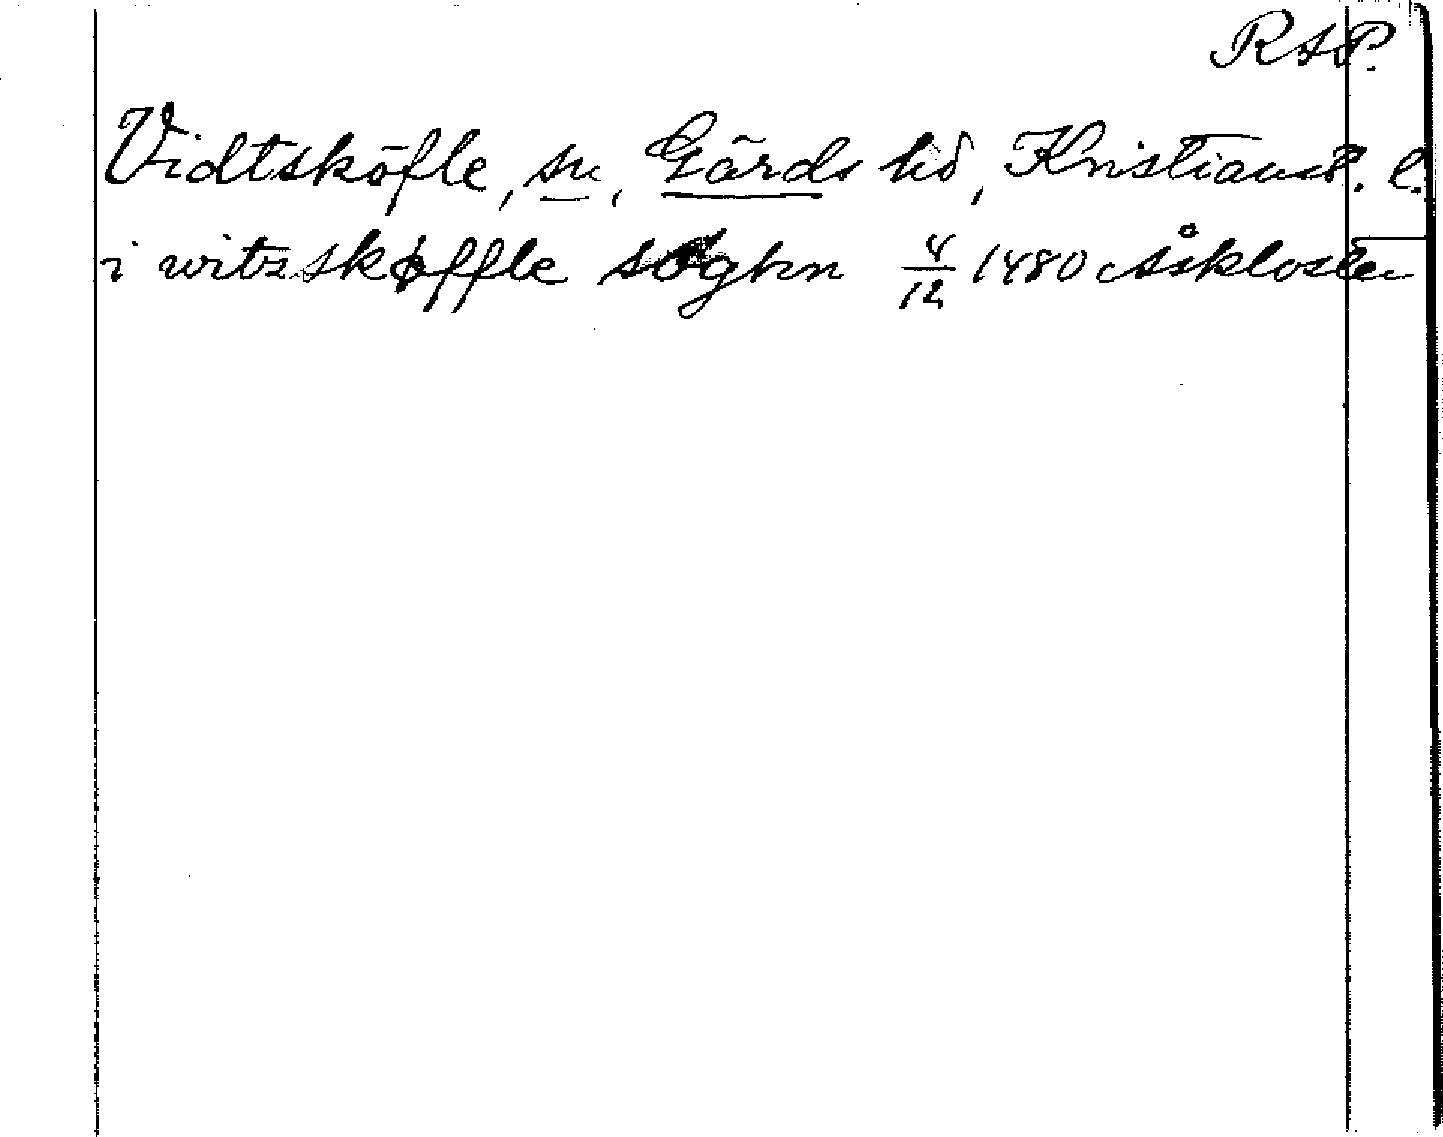 RAP.
Vidtsköfle, sn, Gärds hd, Kristianst. l.
i witzskøffle soghn 4/12 1480 Åskloster